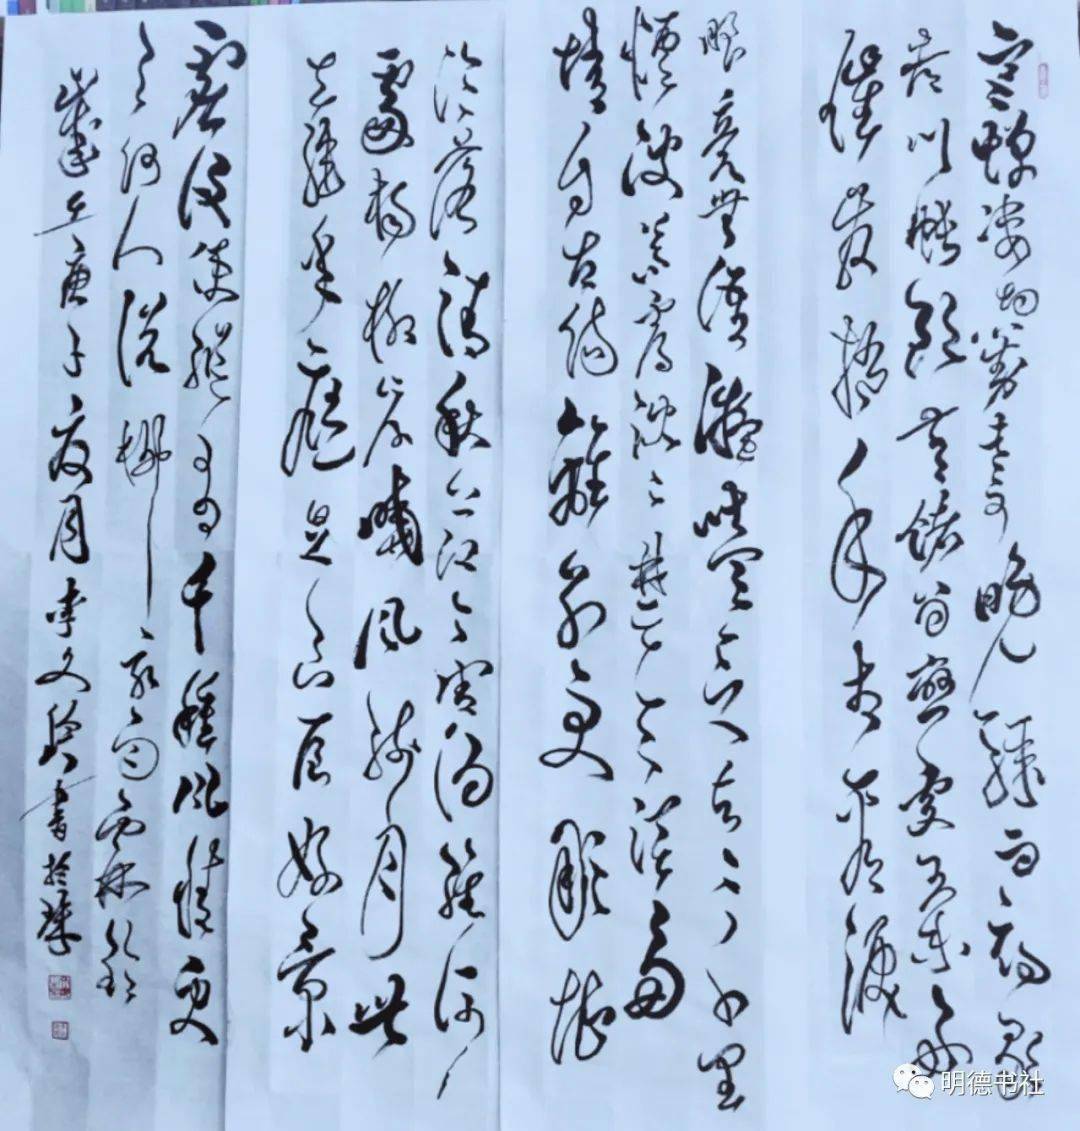 寒蝉凄切对长亭晚骤雨初歇
都门帐饮无绪留恋处兰舟
催发执手相看泪
眼竟无语凝噎念去去千里
烟波暮霭沉沉楚天阔多
情自古伤离别更那堪
冷落清秋节今宵酒醒何
处杨柳岸晓风残月此
去经年应是良辰好景
虚设便纵有千种风情更
与何人说柳永词雨霖铃
岁在庚子夏月李文书于
明德书社